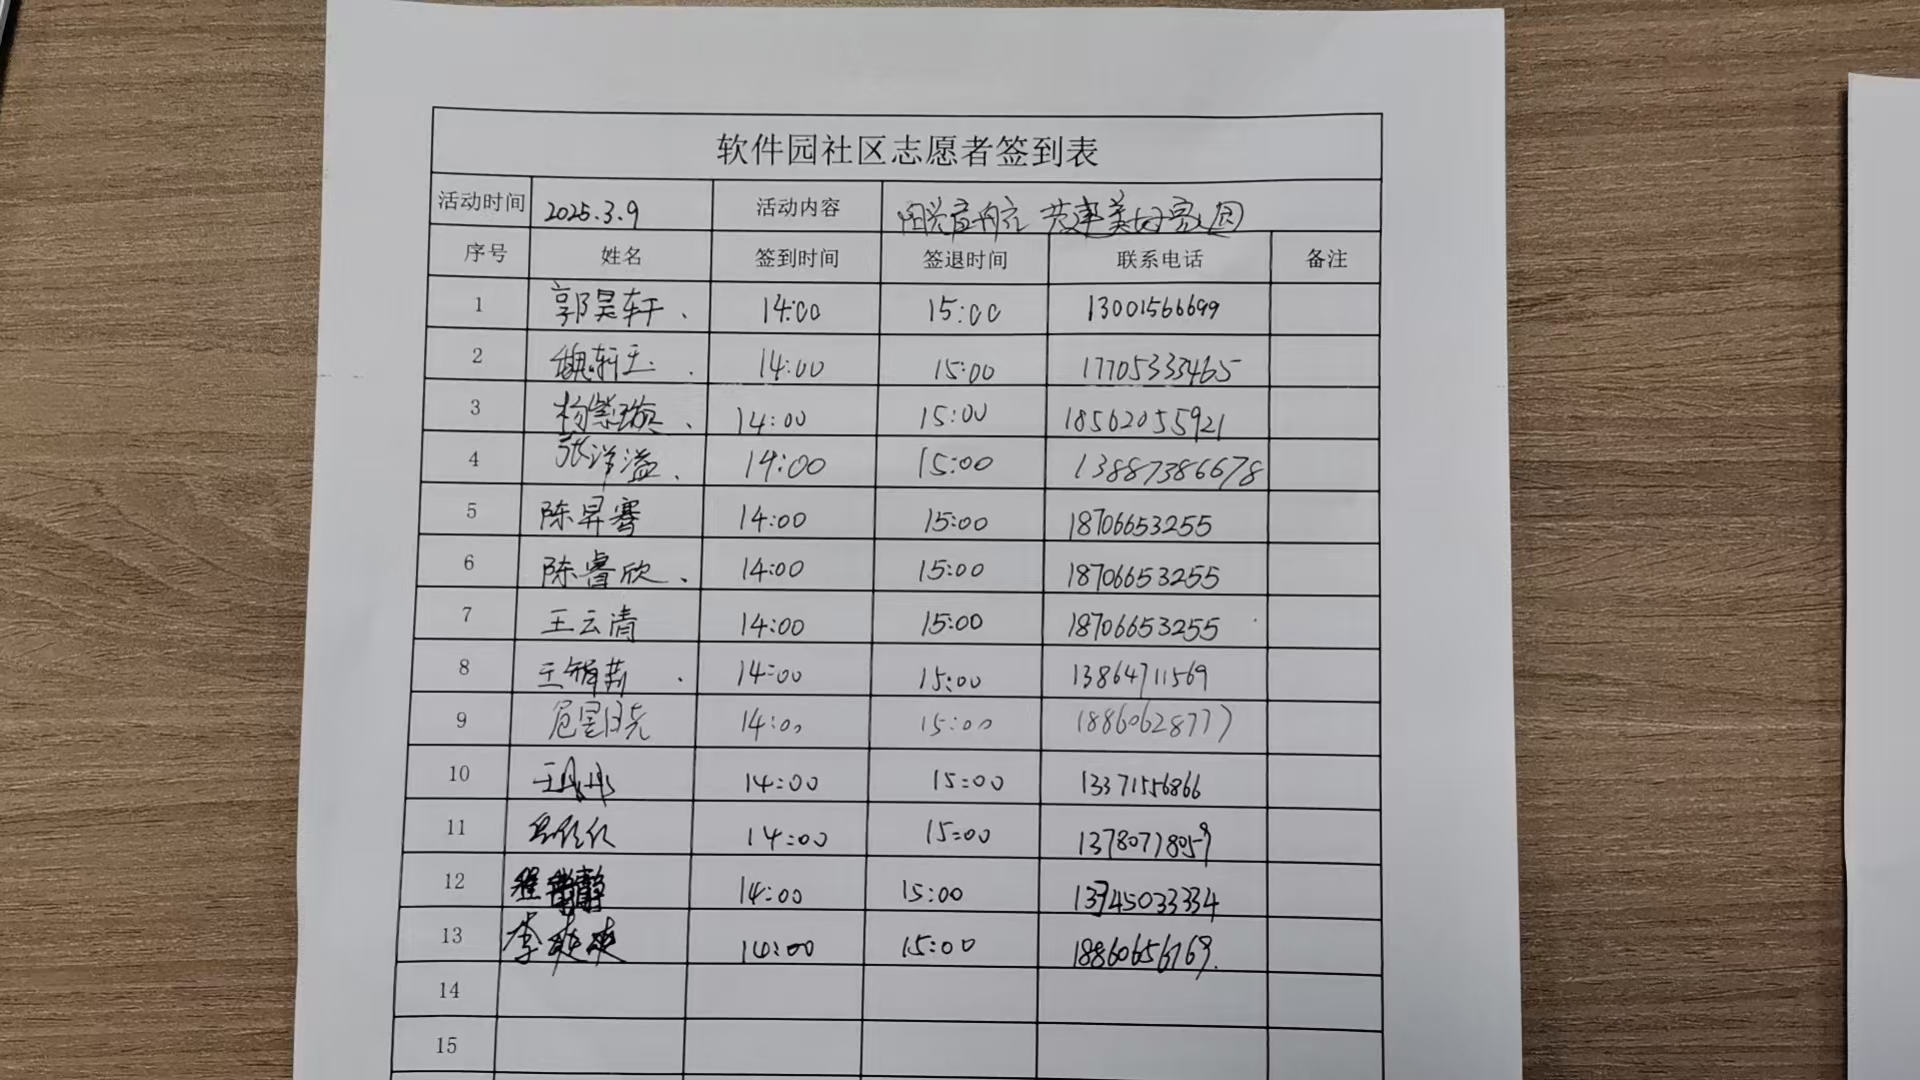 软件园社区志愿者签到表
活动时间 2025.3.9 活动内容 共建美好家园
序号 姓名 签到时间 签退时间 联系电话 备注
1 郭昊轩. 14:00 15:00 13001566699
2 魏轩王. 14:00 15:00 17705333465
3 杨紫璇. 14:00 15:00 18562055921
4 张洋溢. 14:00 15:00 13887386678
5 陈昇骞 14:00 15:00 18706653255
6 陈睿欣. 14:00 15:00 18706653255
7 王云清 14:00 15:00 18706653255
8 王 莉. 14:00 15:00 13864711569
9 14:00 15:00 18860628777
10 王 14:00 15:00 13371556866
11 14:00 15:00 13780778059
12 程 静 14:00 15:00 13745033334
13 李爽爽 14:00 15:00 18860656769.
14
15